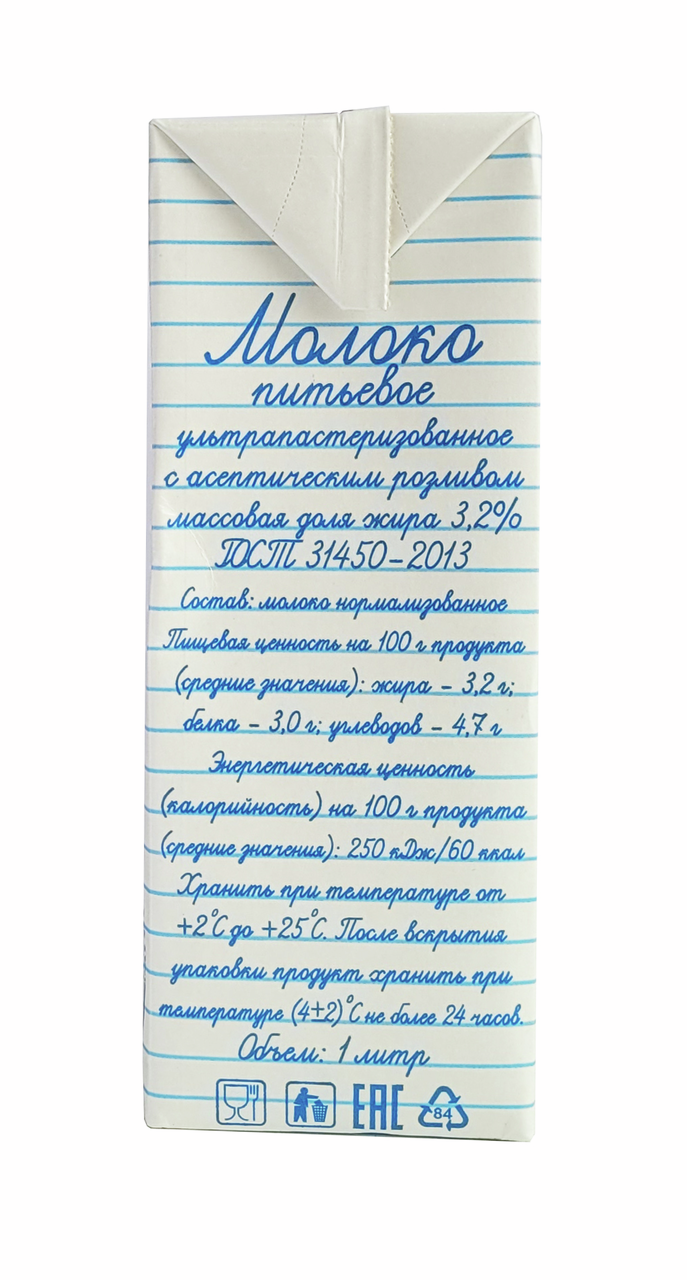 Молоко
питьевое
ультрапастеризованное
с асептическим розливом
массовая доля жира 3,2%
ГОСТ 31450-2013
Состав: молоко нормализованное
Пищевая ценность на 100 г продукта
(средние значения): жира - 3,2 г;
белка - 3,0 г; углеводов - 4,7 г
Энергетическая ценность
(калорийность) на 100 г продукта
(средние значения): 250 кДж/60 ккал
Хранить при температуре от
+2°С до +25°С. После вскрытия
упаковки продукт хранить при
температуре (4±2)°С не более 24 часов.
Объем: 1 литр
ЕАС 84